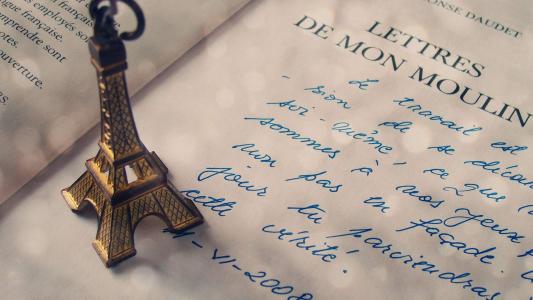 français
employés so
gue française.
mprendre sont
otes.
ouverture.
rs.
ONSE DAUDET
LETTRES
DE MON MOULIN
- Le travail est
sion de se décou
soi-même, ce que
sommes à nos yeux
nux pas en façade.
Jour tu parviendras
cette vérité.
11-VI-2008